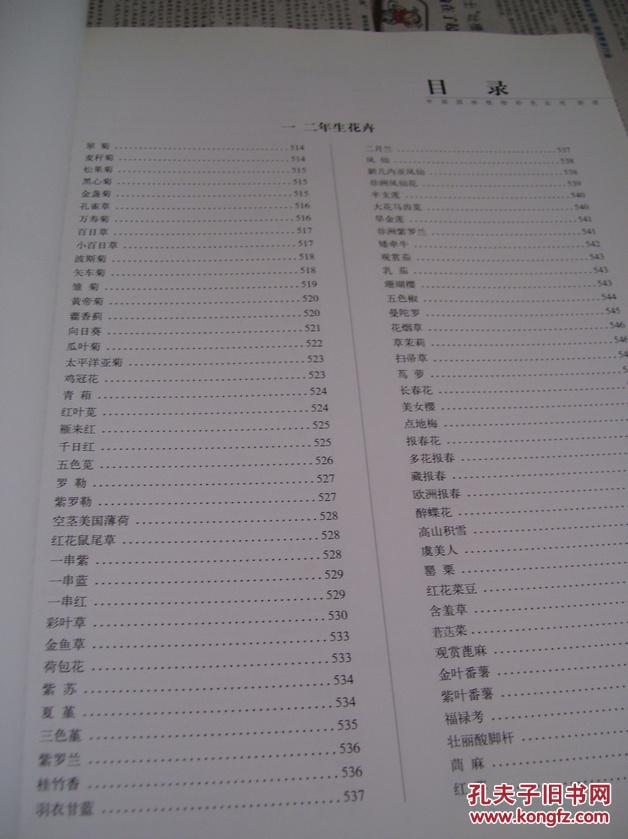 目 录
一 二年生花卉
翠 菊 514
麦秆菊 514
松果菊 515
黑心菊 515
金盏菊 515
孔雀草 516
万寿菊 516
百日草 517
小百日草 517
波斯菊 518
矢车菊 518
雏 菊 519
黄帝菊 520
藿香蓟 520
向日葵 521
瓜叶菊 522
太平洋亚菊 523
鸡冠花 523
青 葙 524
红叶苋 524
雁来红 525
千日红 525
五色苋 526
罗 勒 527
紫罗勒 527
空茎美国薄荷 528
红花鼠尾草 528
一串紫 528
一串蓝 529
一串红 529
彩叶草 530
金鱼草 533
荷包花 533
紫 苏 534
夏 堇 534
三色堇 535
紫罗兰 536
桂竹香 536
羽衣甘蓝 537
二月兰 537
凤 仙 538
新几内亚凤仙 538
非洲凤仙花 539
半支莲 540
大花马齿苋 540
旱金莲 541
非洲紫罗兰 541
矮牵牛 542
观赏茄 543
乳 茄 543
珊瑚樱 543
五色椒 544
曼陀罗 545
花烟草 546
草茉莉 546
扫帚草
茑 萝
长春花
美女樱
点地梅
报春花
多花报春
藏报春
欧洲报春
醉蝶花
高山积雪
虞美人
罂 粟
红花菜豆
含羞草
莙荙菜
观赏蓖麻
金叶番薯
紫叶番薯
福禄考
壮丽酸脚杆
茼 麻
红
孔夫子旧书网
KONGFZ.COM